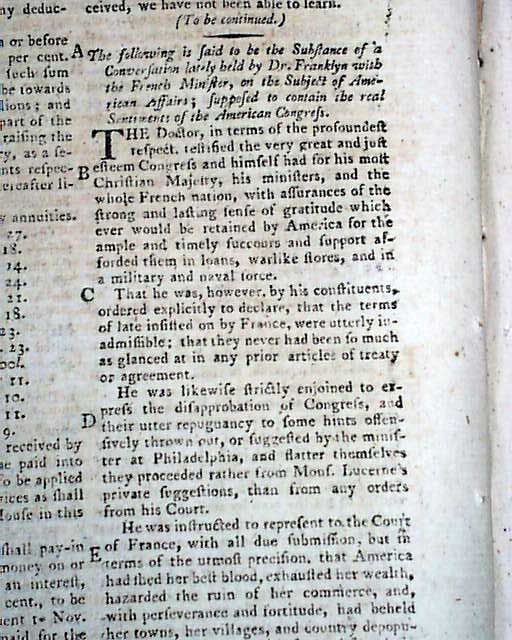 ny deduc-
n or before
per cent.
such sum
be towards
llions; and
part of the
raising the
ry, as a se-
nts respec-
ereafter li-
y annuities.
27.
18.
14.
24.
21.
18.
23.
23.
11.
10.
11.
9.
received by
be paid into
to be applied
vices as shall
House in this
shall pay-in
money on or
an interest,
cent., to be
uent to Nov.
paid for the
ceived, we have not been able to learn.
(To be continued.)
A The following is said to be the Substance of a
Conversation lately held by Dr. Franklyn with
the French Minister, on the Subject of Ame-
rican Affairs; supposed to contain the real
Sentiments of the American Congress.
THE Doctor, in terms of the profoundest
respect, testified the very great and just
B esteem Congress and himself had for his most
Christian Majesty, his ministers, and the
whole French nation, with assurances of the
strong and lasting sense of gratitude which
ever would be retained by America for the
ample and timely succours and support af-
forded them in loans, warlike stores, and in
a military and naval force.
C That he was, however, by his constituents,
ordered explicitly to declare, that the terms
of late insisted on by France, were utterly in-
admissible; that they never had been so much
as glanced at in any prior articles of treaty
or agreement.
He was likewise strictly enjoined to ex-
press the disapprobation of Congress, and
D their utter repugnancy to some hints offen-
sively thrown out, or suggested by the minis-
ter at Philadelphia, and flatter themselves
they proceeded rather from Mons. Lucerne's
private suggestions, than from any orders
from his Court.
He was instructed to represent to the Court
E of France, with all due submission, but in
terms of the utmost precision, that America
had shed her best blood, exhausted her wealth,
hazarded the ruin of her commerce, and,
with perseverance and fortitude, had beheld
her towns, her villages, and country depopu-